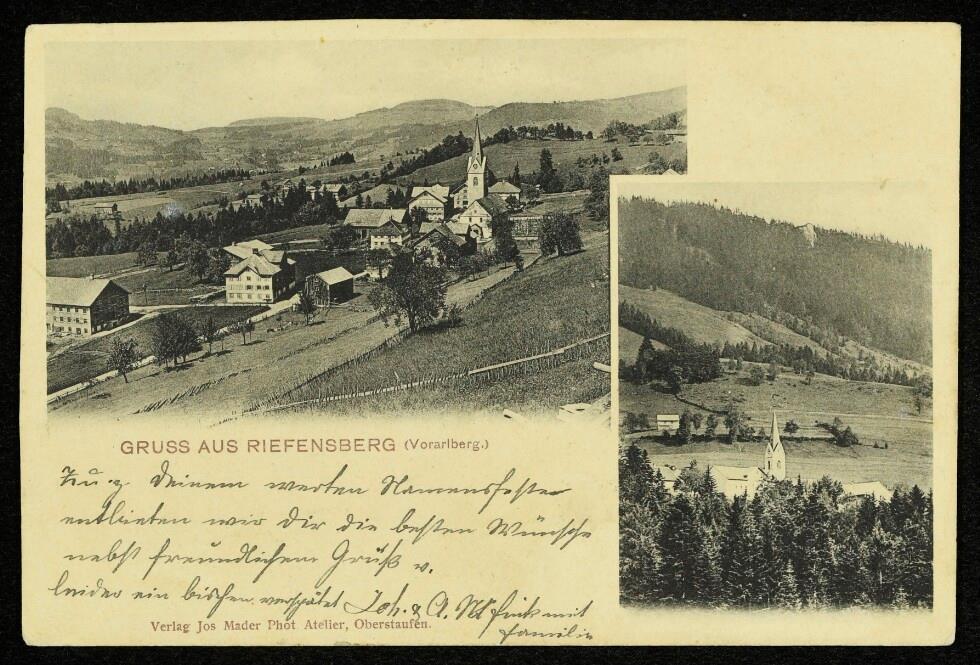 GRUSS AUS RIEFENSBERG (Vorarlberg.)
Zu deinem werten Namensfeste
entbieten wir Dir die besten Wünsche
nebst freundlichem Gruß v.
leider ein bischen verspätet Joh. & A. Fink mit
familie
Verlag Jos Mader Phot Atelier, Oberstaufen.